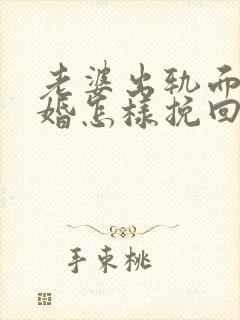 老婆出轨而
婚怎样挽回
手束桃